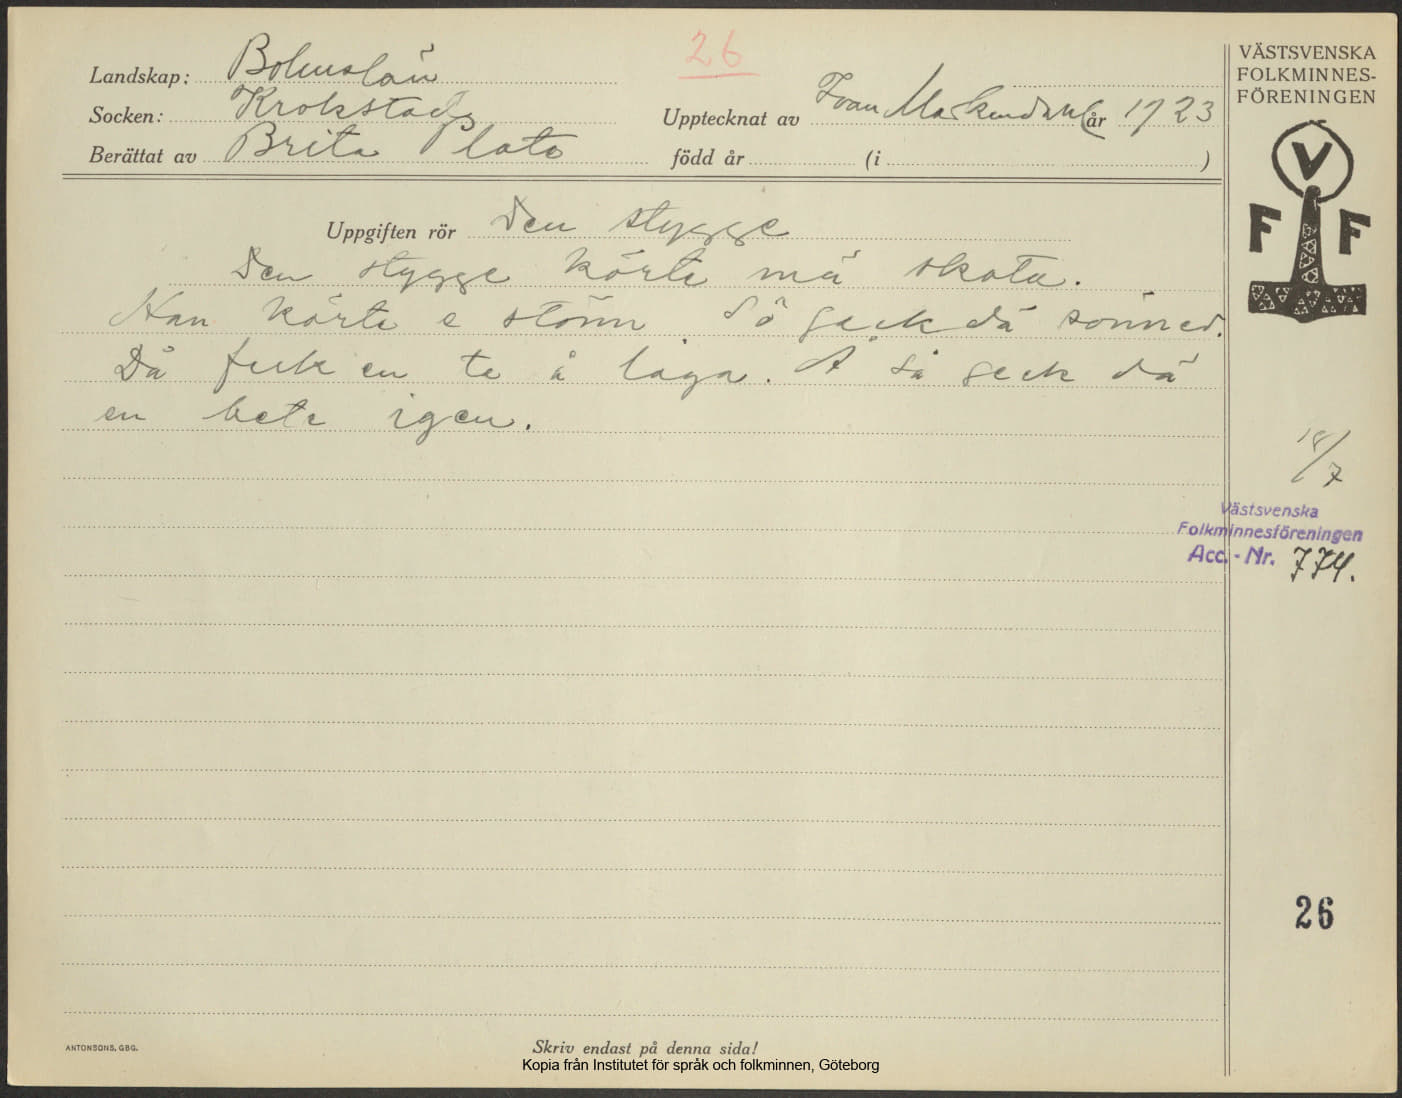 26
Landskap: Bohuslän
Socken: Krokstad
Upptecknat av Ivan Markendahl år 1923
Berättat av Brita Plato
född år (i )
Uppgiften rör Den stygge
Den stygge körte mä skata.
Han körte e stönn Så geck dä sönner.
Då feck en te å laga. Å så geck dä
en bete igen.
VÄSTSVENSKA
FOLKMINNES-
FÖRENINGEN
V
F F
18/7
Västsvenska
Folkminnesföreningen
Acc.-Nr. 774.
26
ANTONSONS, GBG.
Skriv endast på denna sida!
Kopia från Institutet för språk och folkminnen, Göteborg